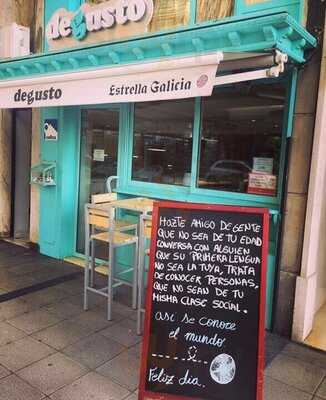 degusto
degusto
Estrella Galicia
HAZTE AMIGO DE GENTE
QUE NO SEA DE TU EDAD
CONVERSA CON ALGUIEN
QUE SU PRIMERA LENGUA
NO SEA LA TUYA, TRATA
DE CONOCER PERSONAS,
QUE NO SEAN DE TU
MISMA CLASE SOCIAL.
así se conoce
el mundo.
Feliz día.